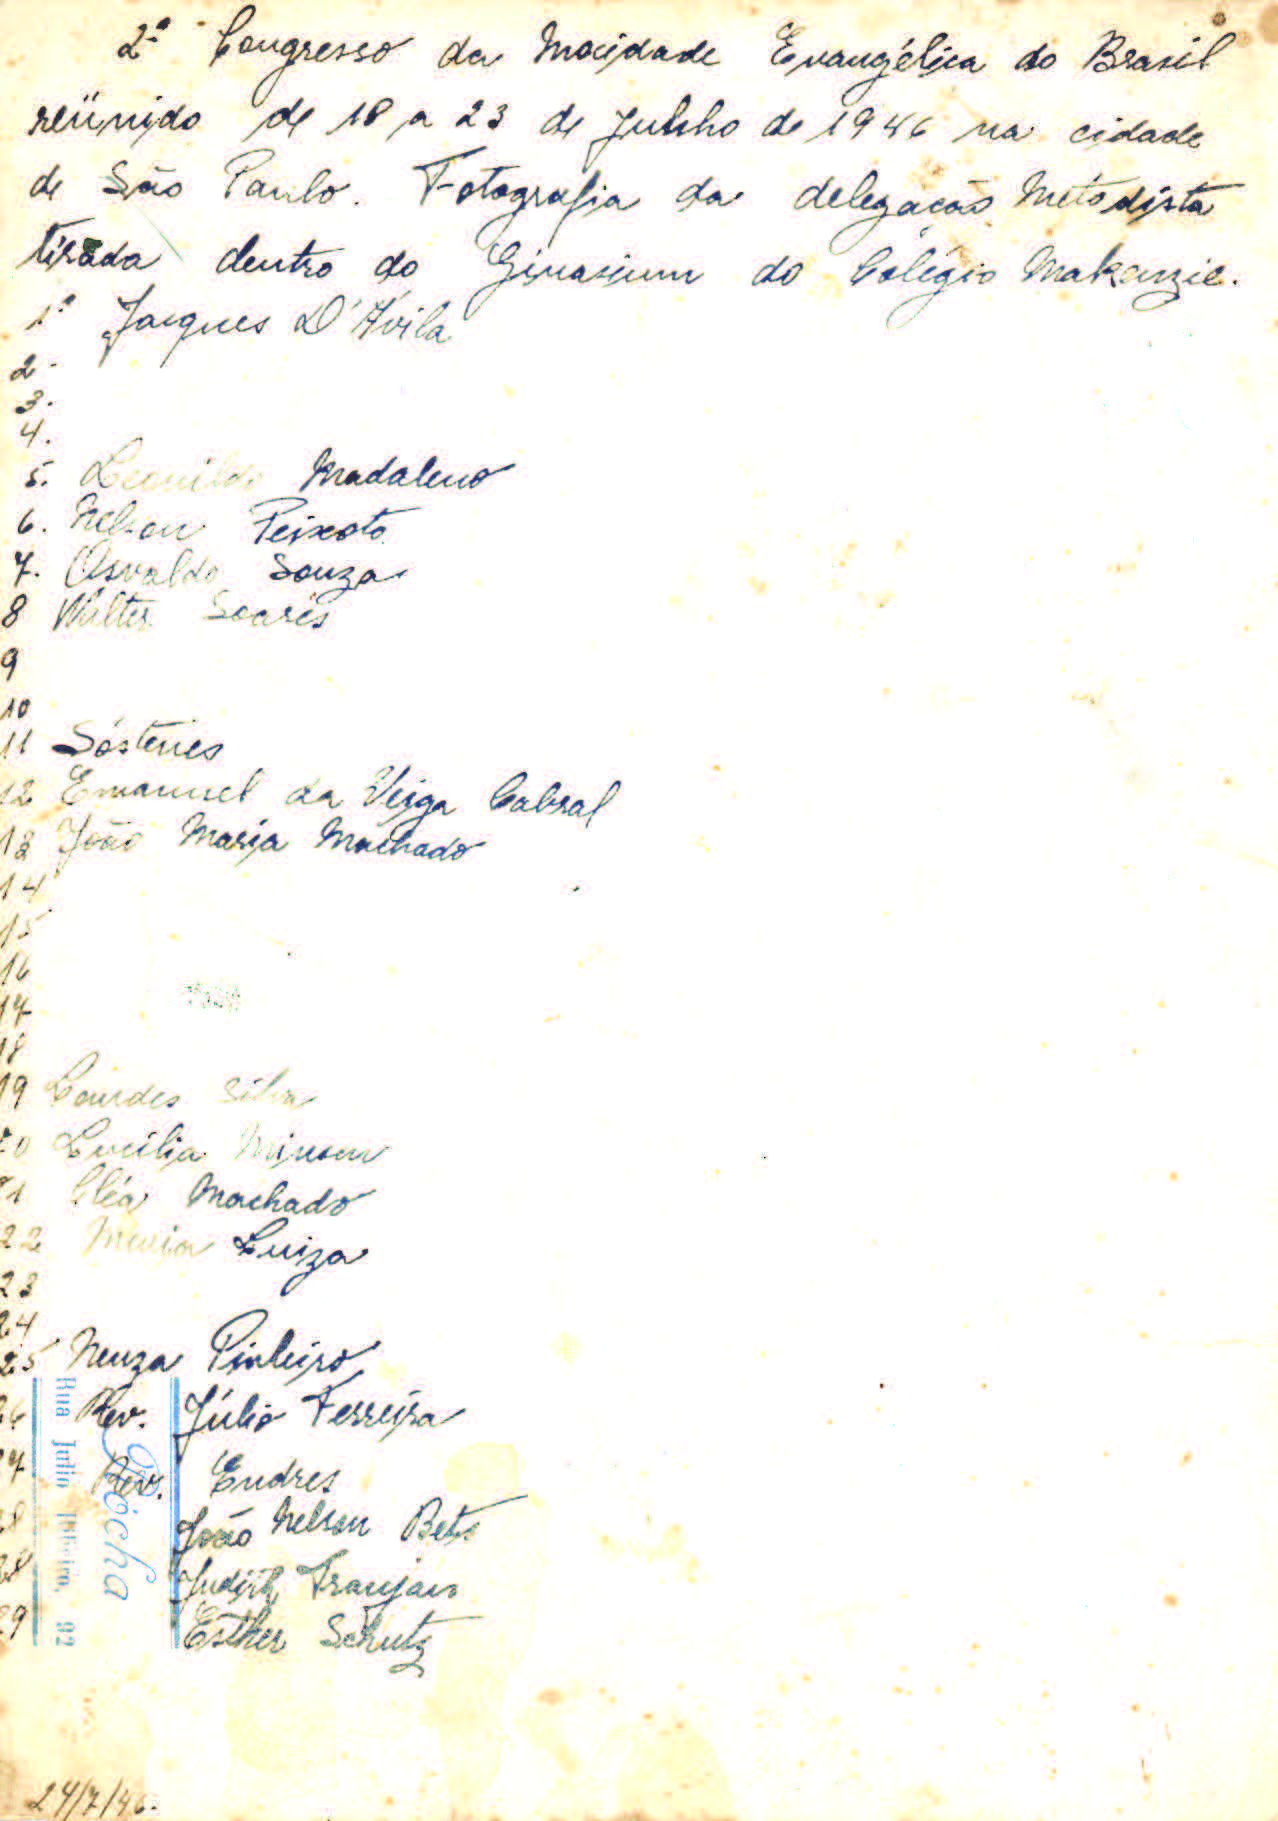 2º Congresso da Mocidade Evangélica do Brasil
reünido de 18 a 23 de Julho de 1946 na cidade
de São Paulo. Fotografia da delegação Metodista
tirada dentro do Ginasium do Colégio Makenzie.
1º Jacques D'Ávila
2.
3.
4.
5. Leonildo Madaleno
6. Nelson Peixoto
7. Osvaldo Souza
8 Walter Soares
9
10
11 Sóstenes
12 Emanuel da Veiga Cabral
13 João Maria Machado
14
15
16
17
18
19 Lourdes Silva
20 Lucília
21 Cléa Machado
22 Maria Luiza
23
24
25 Neuza Pinheiro
26 Rev. Júlio Ferreira
27 Rev. Endres
28 João Nelson Bets
28 Judith Franjan
29 Esther Schutz
Foto Rocha
Rua Julio Ribeiro, 92
24/7/46.